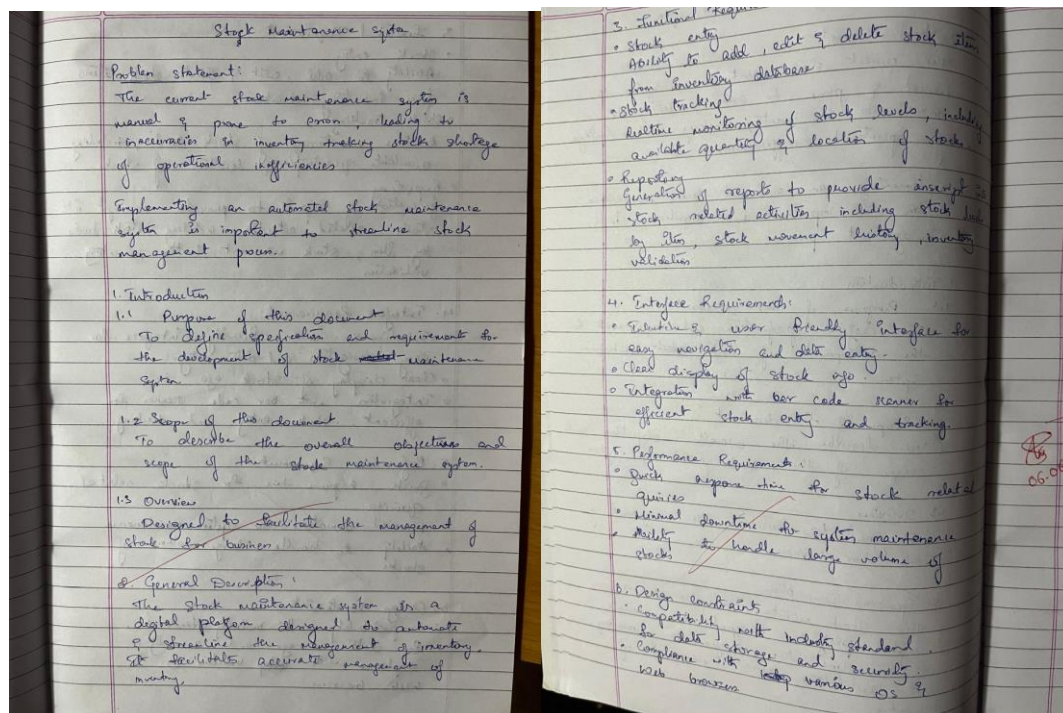 Stock Maintenance System
Problem statement:
The current stock maintenance system is
manual & prone to error, leading to
inaccuracies in inventory tracking stock shortage
of operational inefficiencies
Implementing an automated stock maintenance
system is important to streamline stock
management process.
1. Introduction
1.1 Purpose of this document
To define specification and requirement for
the development of stock maintenance
System
1.2 Scope of this document
To describe the overall objectives and
scope of the stock maintenance system.
1.3 Overview
Designed to facilitate the management of
stock for business
2. General Description:
The stock maintenance system is a
digital platform designed to automate
& streamline the management of inventory.
It facilitates accurate management of
inventory.
3. Functional Requir
• Stock entry
Ability to add, edit & delete stock item
from inventory database
• Stock tracking
Realtime monitoring of stock levels, including
available quantity & location of stocks
Generation of reports to provide
stock related activities, including stock
by item, stock movement history, inventory
validation
4. Interface Requirements:
• Intuitive & user friendly interface for
easy navigation and data entry.
• Clear display of stock info.
• Integration with bar code scanner for
efficient stock entry and tracking.
5. Performance Requirements:
• Quick response time for stock related
quiries
• Minimal downtime for system maintenance
to handle large volume of
stocks
6. Design constraints
• Compatibility with industry standard
for data storage and security.
• Compliance with various OS &
web browsers
06.0